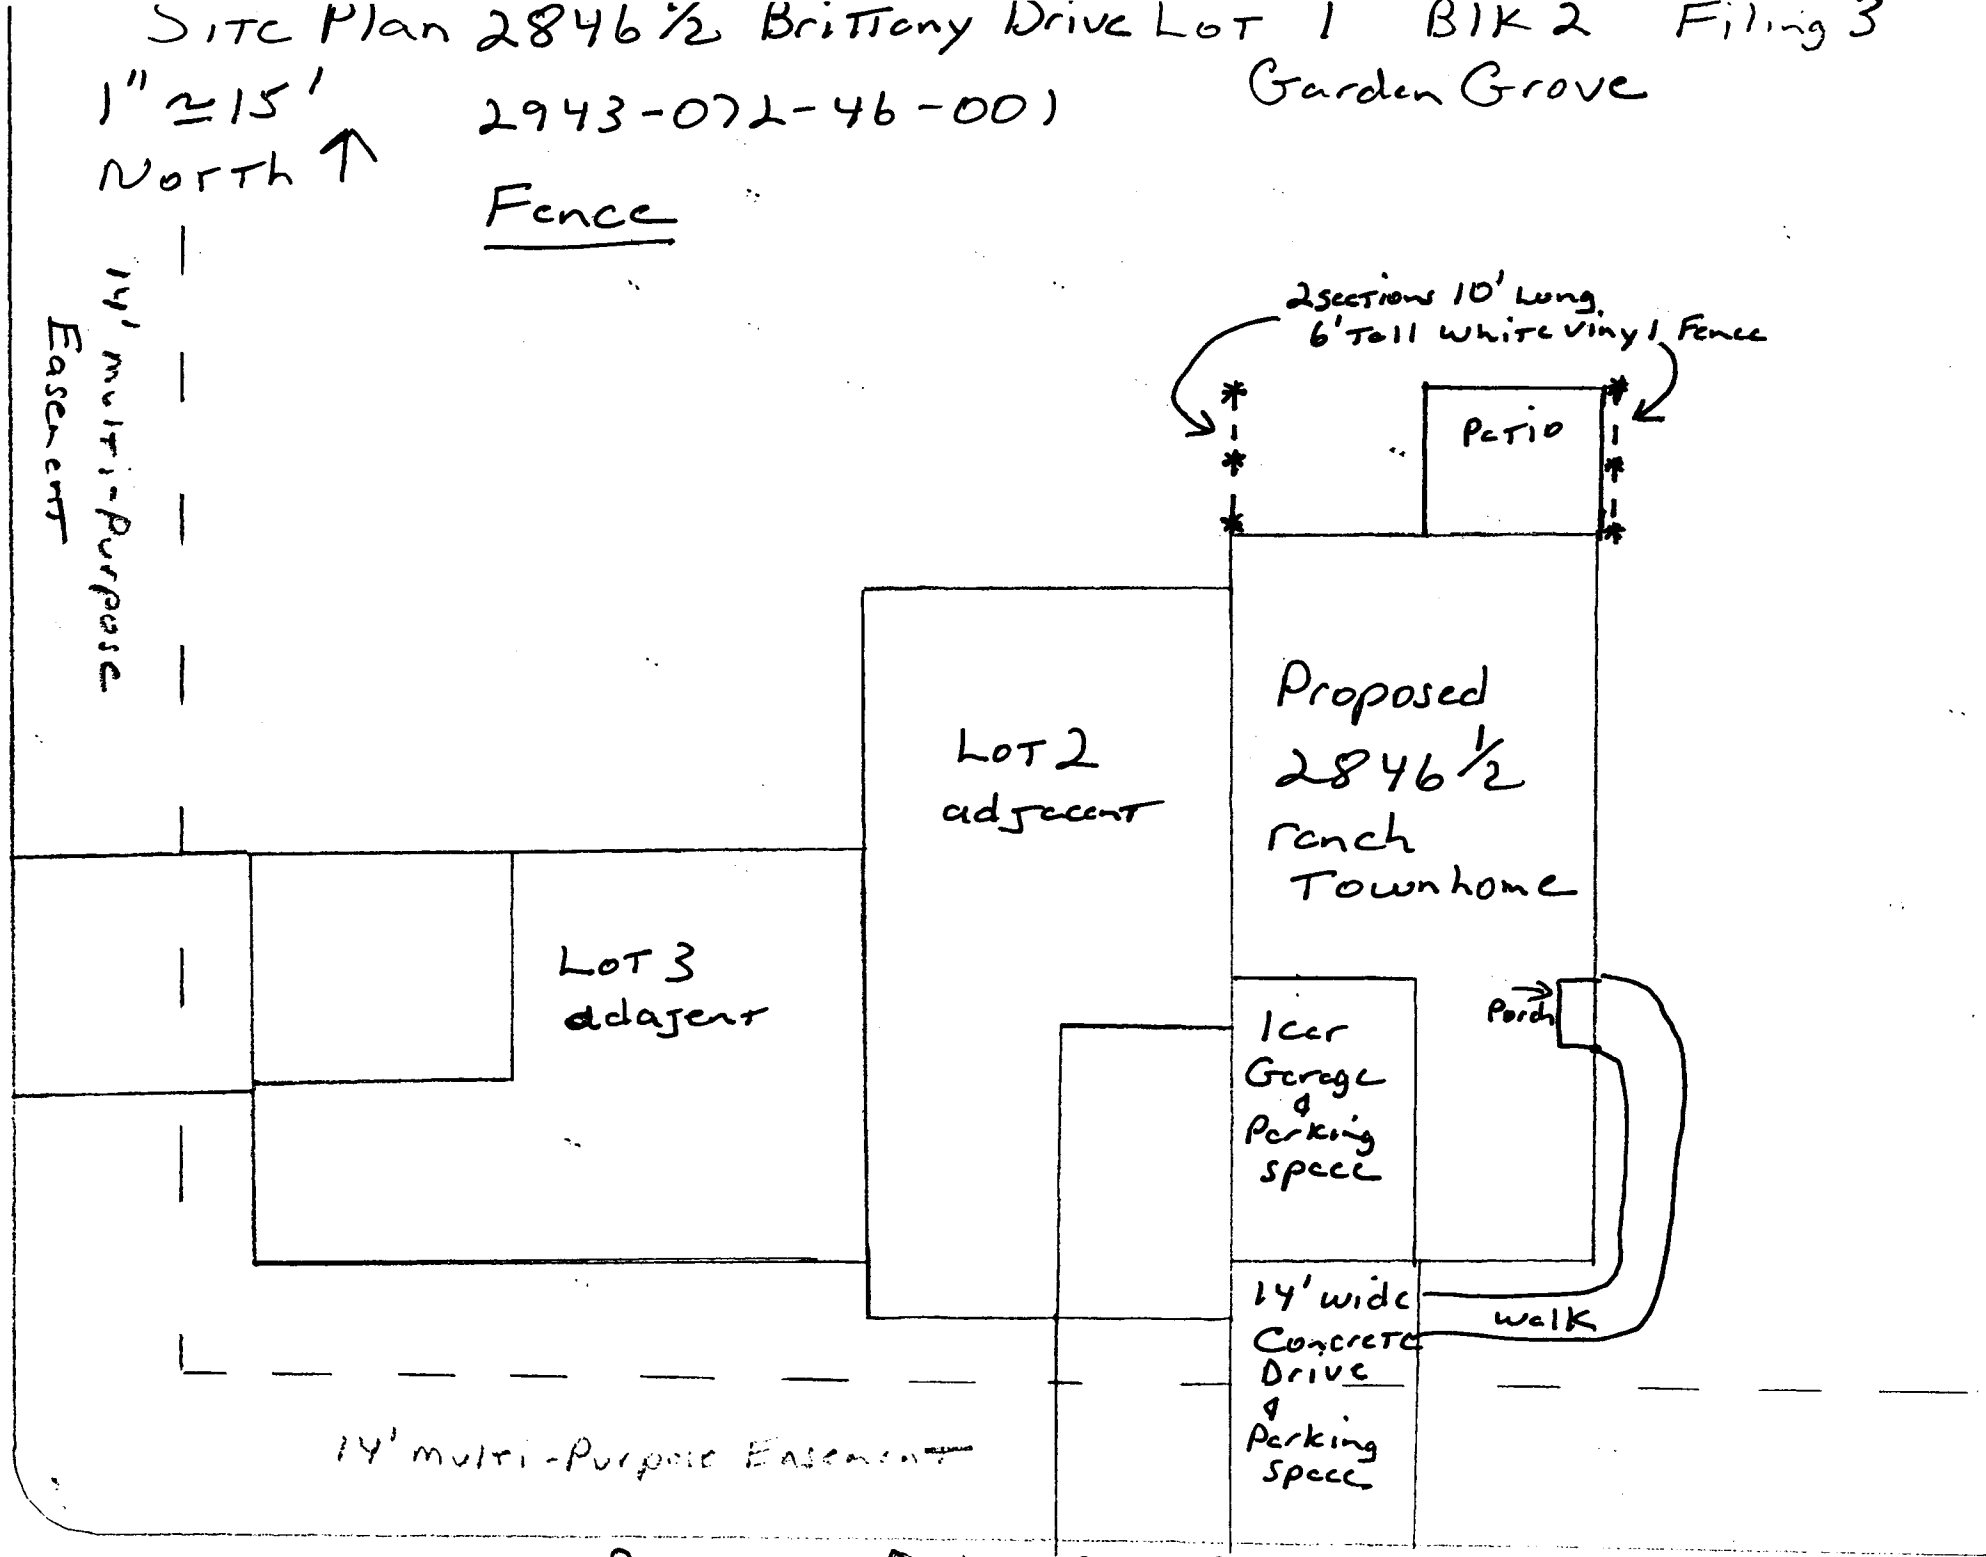 Site Plan 2846 1/2 Brittany Drive Lot 1 Blk 2 Filing 3
Garden Grove
1" ≃ 15'
2943-072-46-001
North ↑
Fence
14' multi-Purpose
Easement
2 sections 10' Long
6' Tall white vinyl Fence
Patio
Proposed
2846 1/2
ranch
Townhome
Lot 2
adjacent
Lot 3
adajent
Porch
1 car
Garage
&
Parking
space
14' wide
Concrete
Drive
&
Parking
space
walk
14' multi-Purpose Easement